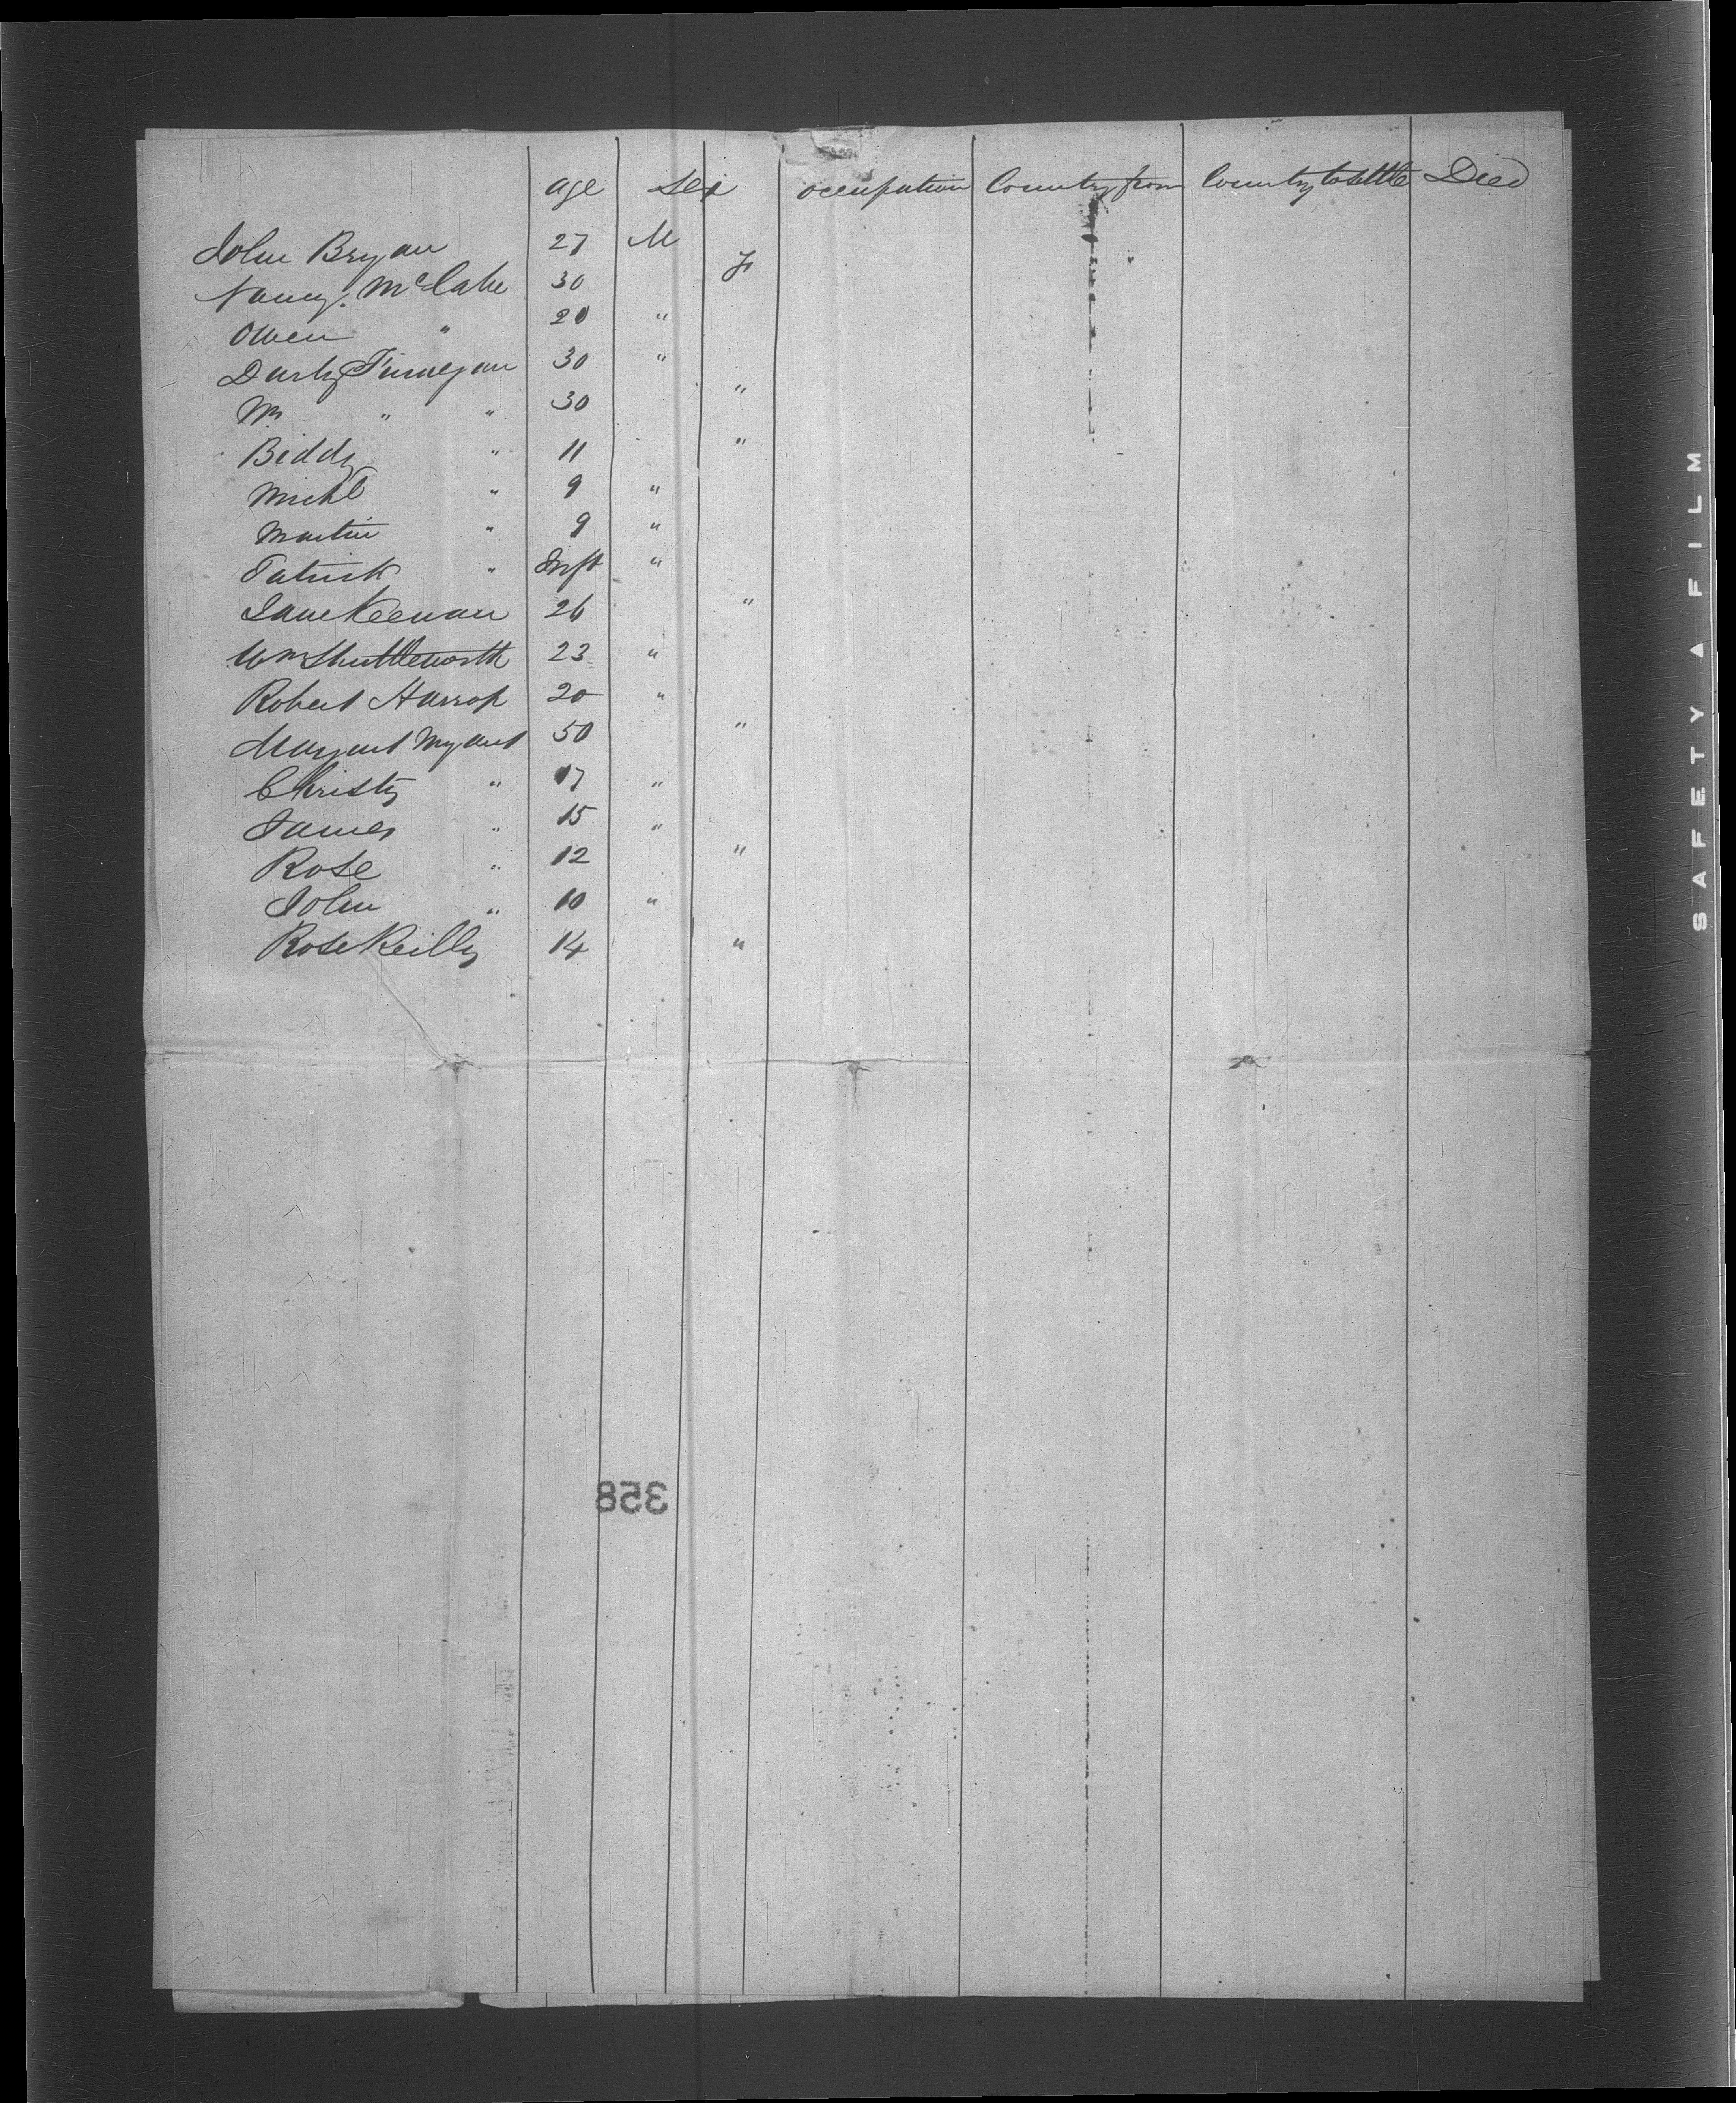 age sex occupation Country from Country to settle Died
John Bryan 27 M
Nancy McCabe 30 F
Owen " 20 "
Darby Finnegan 30 "
Mrs " " 30 "
Biddy " 11 "
Michl " 9 "
Martin " 9 "
Patrick " Inft "
Jane Keenan 26 "
Wm Shuttleworth 23 "
Robert Harrop 20 "
Margaret 50 "
Christy " 17 "
James " 15 "
Rose " 12 "
John " 10 "
Rose Reilly 14 "
358
SAFETY A FILM